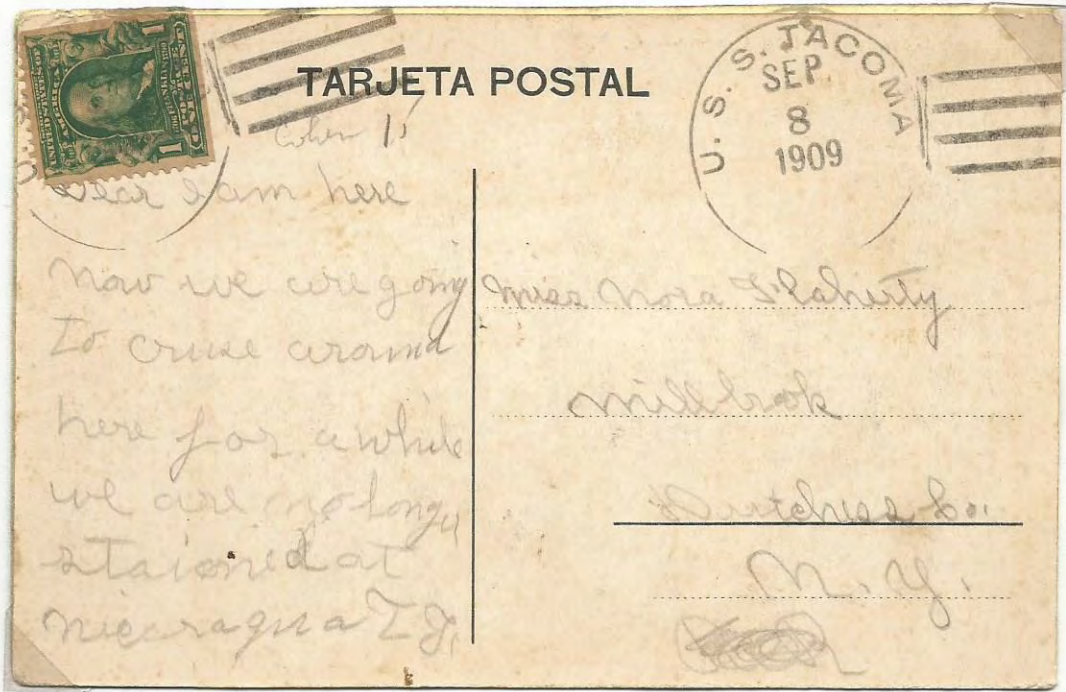 TARJETA POSTAL
U. S. S. TACOMA
SEP
8
1909
UNITED STATES OF AMERICA
1 1
Colon
Dear I am here
now we are going
to cruse around
here for a while
we are no longer
staioned at
Nicaragua T.J.
Miss Nora Flaherty
Millbrok
Dutchess Co.
N. Y.